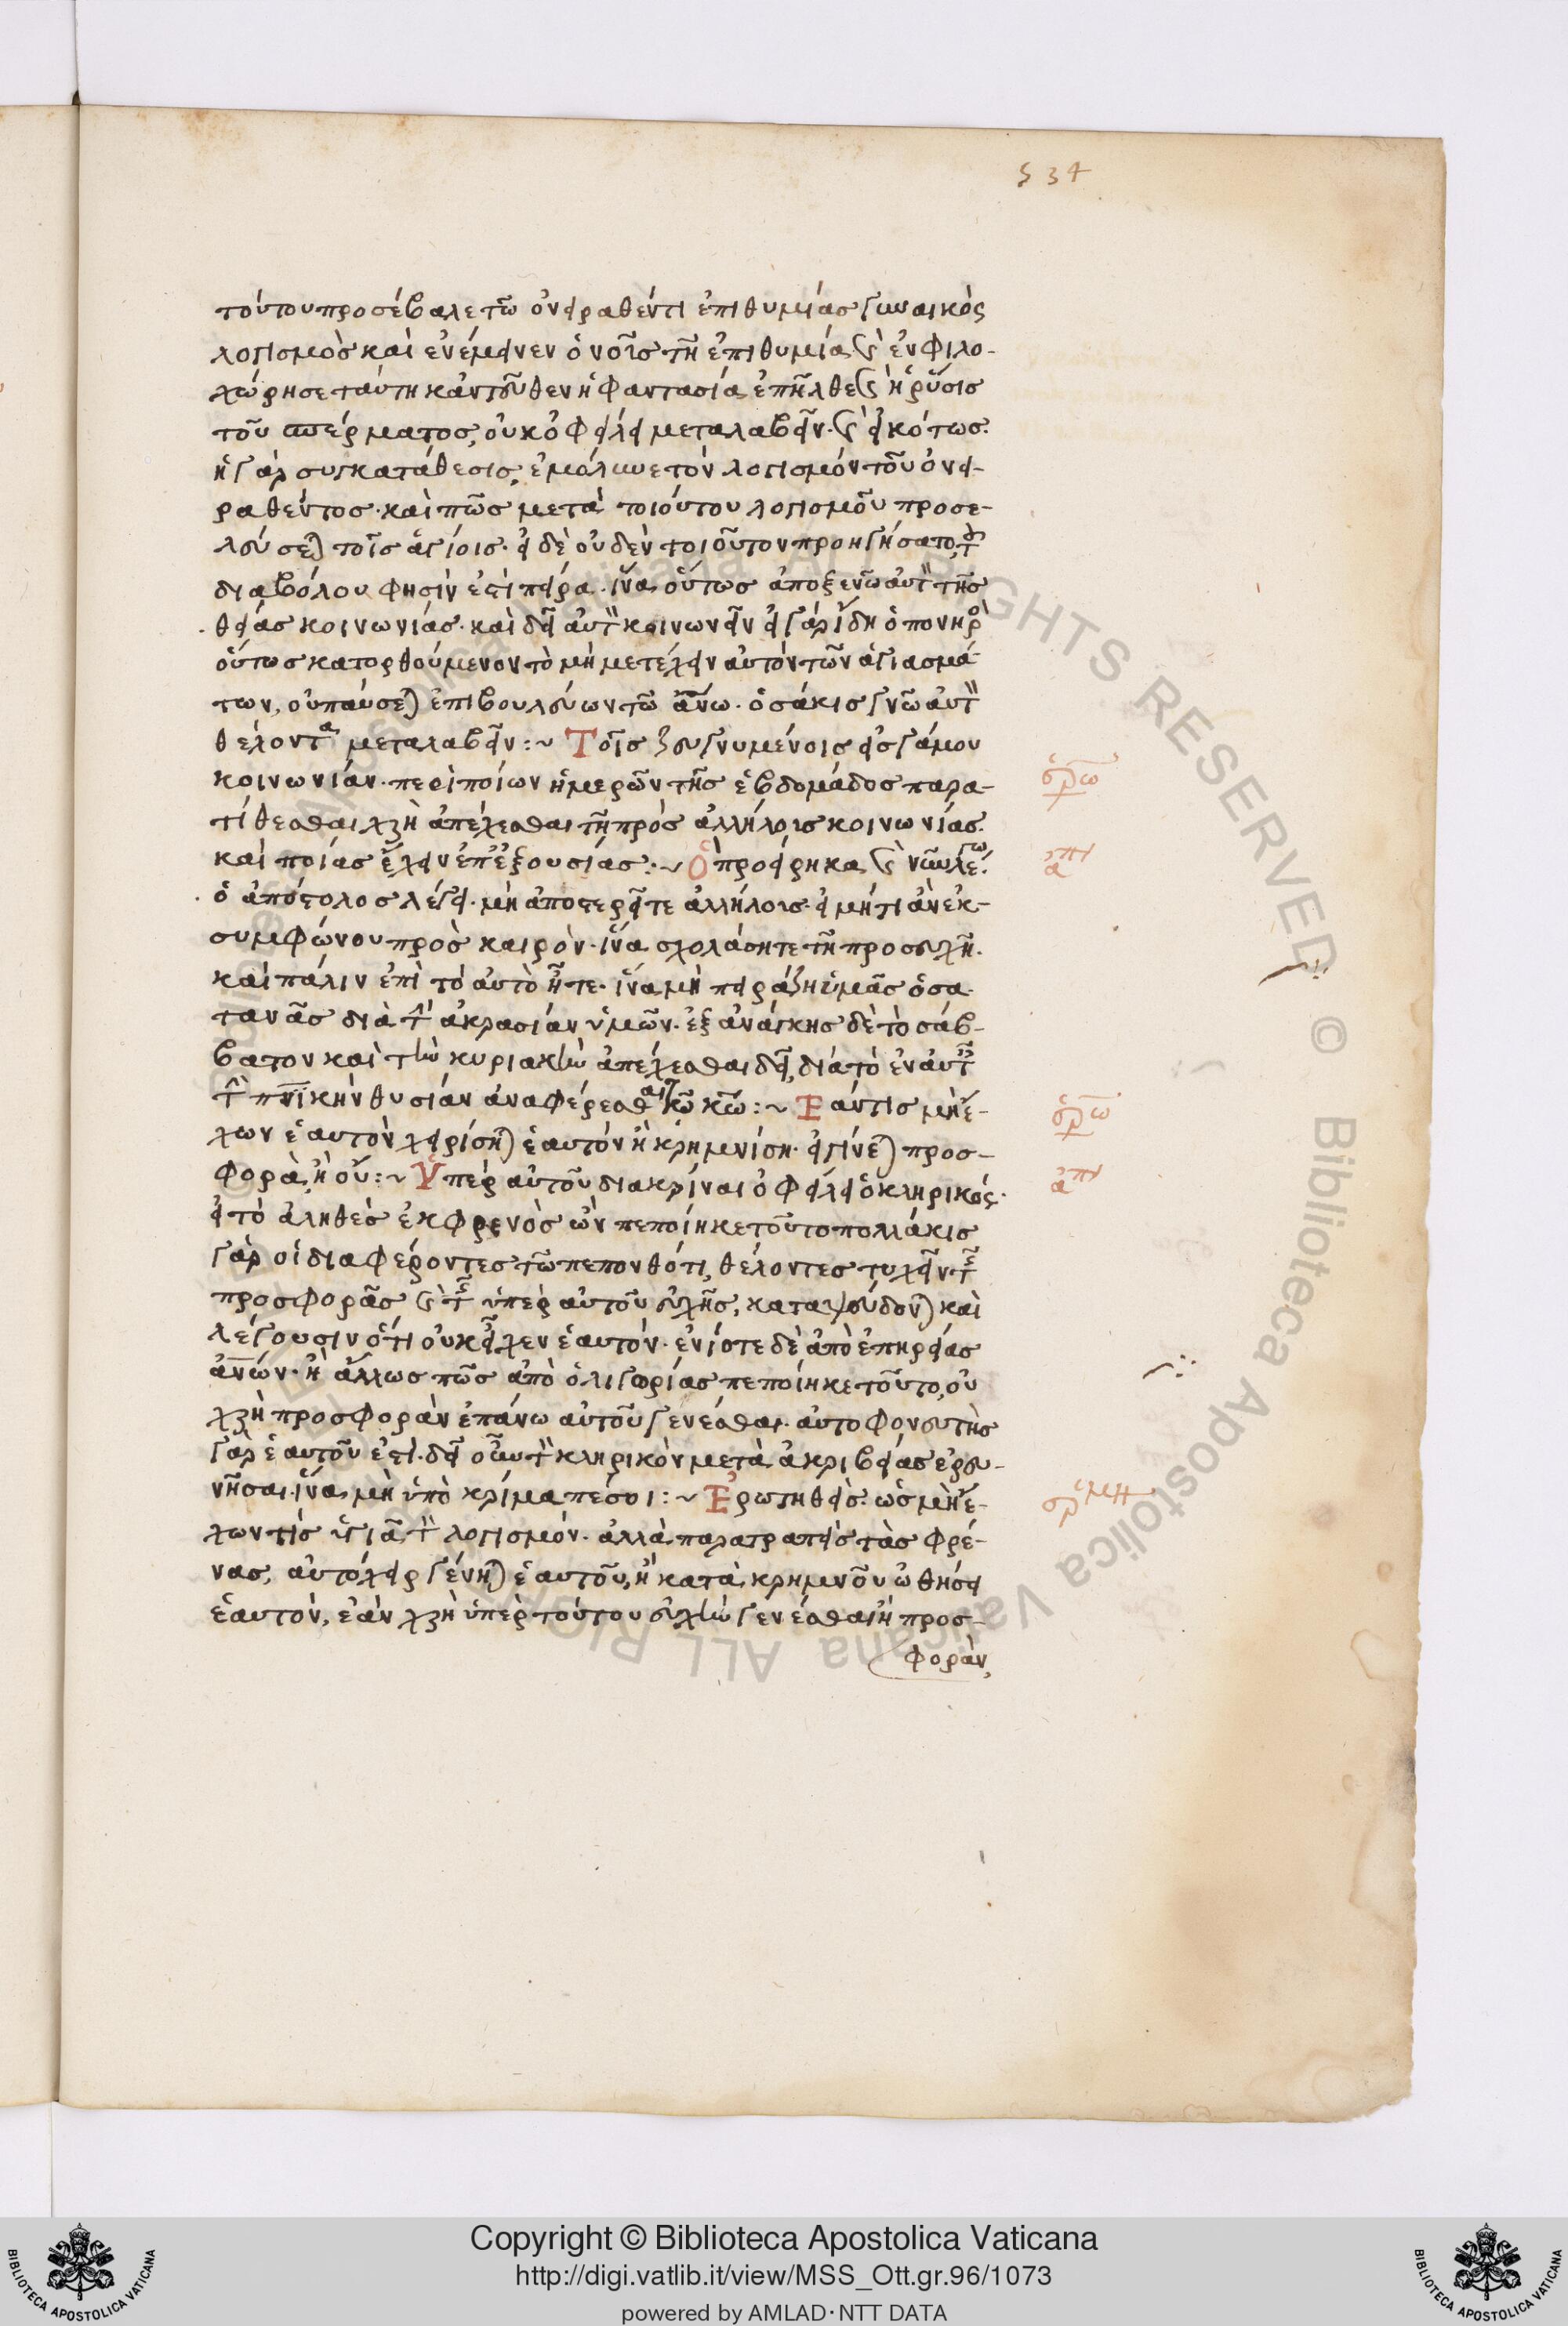 534
τούτου προσέβαλε τῶ ὀνειραθέντι ἐπιθυμίας γυναικὸς
λογισμὸς καὶ ἐνέμεινεν ὁ νοῦς τῆ ἐπιθυμία, καὶ ἐνεφιλο-
χώρησε ταύτη κἀντεῦθεν ἡ φαντασία ἐπῆλθε καὶ ἡ ῥύσις
τοῦ σπέρματος, οὐκ ὀφείλει μεταλαβεῖν. καὶ εἰκότως.
ἡ γὰρ συγκατάθεσις, ἐμόλυνε τὸν λογισμὸν τοῦ ὀνει-
ραθέντος. καὶ πῶς μετὰ τοιούτου λογισμοῦ προσε-
λεύσεται τοῖς ἁγίοις. εἰ δὲ οὐδὲν τοιοῦτον προηγήσατο, τοῦ
διαβόλου φησὶν ἐστὶ πεῖρα. ἵνα οὕτως ἀποξενῶ αὐτὸν τῆς
θείας κοινωνίας. καὶ δεῖ αὐτὸν κοινωνεῖν εἰ γὰρ ἴδη ὁ πονηρὸς
οὕτως κατορθούμενον τὸ μὴ μετέχειν αὐτὸν τῶν ἁγιασμά-
των, οὐ παύσεται ἐπιβουλεύων τῶ ἀνω. ὁσάκις γνῶ αὐτὸν
θέλοντα μεταλαβεῖν :~ Τοῖς ζευγνυμένοις εἰς γάμου
κοινωνίαν. περὶ ποίων ἡμερῶν τῆς ἑβδομάδος παρα-
τίθεσθαι χρὴ ἀπέχεσθαι τῆ πρὸς ἀλλήλοις κοινωνίας.
καὶ ποίας ἔχειν ἐπ' ἐξουσίας :~ Ὃ προείρηκα καὶ νῦν λέγω.
ὁ ἀπόστολος λέγει. μὴ ἀποστερεῖτε ἀλλήλοις. εἰ μήτι ἂν ἐκ
συμφώνου πρὸς καιρὸν. ἵνα σχολάσητε τῆ προσευχῆ.
καὶ πάλιν ἐπὶ τὸ αὐτὸ ἦτε. ἵνα μὴ πειράζη ὑμᾶς ὁ σα-
τανᾶς διὰ τὴν ἀκρασίαν ὑμῶν. ἐξ ἀνάγκης δὲ τὸ σάβ-
βατον καὶ τὴν κυριακὴν ἀπέχεσθαι δεῖ, διὰ τὸ ἐν αὐταῖς
τὴν πνικὴν θυσίαν ἀναφέρεσθαι τῶ κω :~ Ἐάν τις μὴ ἔ-
χων ἑαυτὸν χειρίσηται ἑαυτὸν ἢ κρημνίση. εἰ γίνεται προσ-
φορὰ, ἢ οὔ :~ Ὑπὲρ αὐτοῦ διακρίναι ὀφείλει ὁ κληρικός.
εἰ τὸ ἀληθὲς ἐκφρενὸς ὢν πεποίηκε τοῦτο πολλάκις
γὰρ οἱ διαφέροντες τῶ πεπονθότι, θέλοντες τυχεῖν τῆς
προσφορᾶς καὶ τῆς ὑπὲρ αὐτοῦ εὐχῆς, καταψεύδονται καὶ
λέγουσιν ὅτι οὐκ εἶχεν ἑαυτόν. ἐνίοτε δὲ ἀπὸ ἐπηρείας
ἀνων. ἢ ἄλλως πῶς ἀπὸ ὀλιγωρίας πεποίηκε τοῦτο, οὐ
χρὴ προσφορὰν ἐπάνω αὐτοῦ γενέσθαι. αὐτοφονευτὴς
γὰρ ἑαυτοῦ ἐστι. δεῖ οὖν τὸν κληρικὸν μετὰ ἀκριβείας ἐρευ-
νῆσαι. ἵνα μὴ ὑπὸ κρίμα πέσοι :~ Ἐρωτηθεὶς. ὡς μὴ ἔ-
χων τίς ὑγιᾶ τὸν λογισμόν. ἀλλὰ παρατραπεὶς τὰς φρέ-
νας, αὐτόχειρ γένηται ἑαυτοῦ, ἢ κατὰ κρημνοῦ ὠθήσει
ἑαυτὸν, ἐὰν χρὴ ὑπὲρ τούτου εὐχὴν γενέσθαι ἢ προσ-
φορὰν,